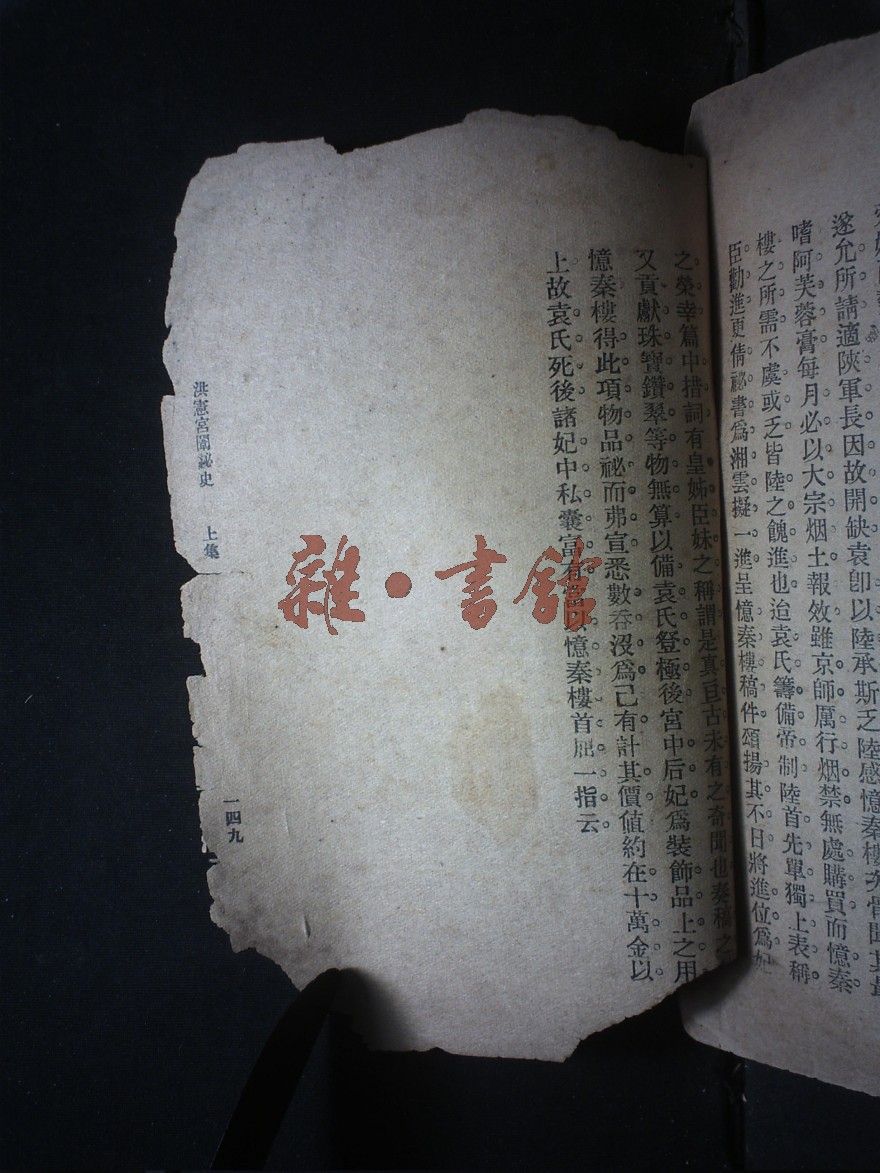 遂允所請適陝軍長因故開缺袁卽以陸承斯乏陸感憶秦樓
嗜阿芙蓉膏每月必以大宗烟土報效雖京師厲行烟禁無處購買而憶秦
樓之所需不虞或乏皆陸之餽進也迨袁氏籌備帝制陸首先單獨上表稱
臣勸進更倩祕書爲湘雲擬一進呈憶秦樓稿件頌揚其不日將進位爲妃
之榮幸篇中措詞有皇姊臣妹之稱謂是真亘古未有之奇聞也奏稿之
又貢獻珠寶鑽翠等物無算以備袁氏登極後宮中后妃爲裝飾品上之用
憶秦樓得此項物品祕而弗宣悉數吞沒爲己有計其價值約在十萬金以
上故袁氏死後諸妃中私囊富有當以憶秦樓首屈一指云
洪憲宮闈祕史 上集 一四九
雜·書館